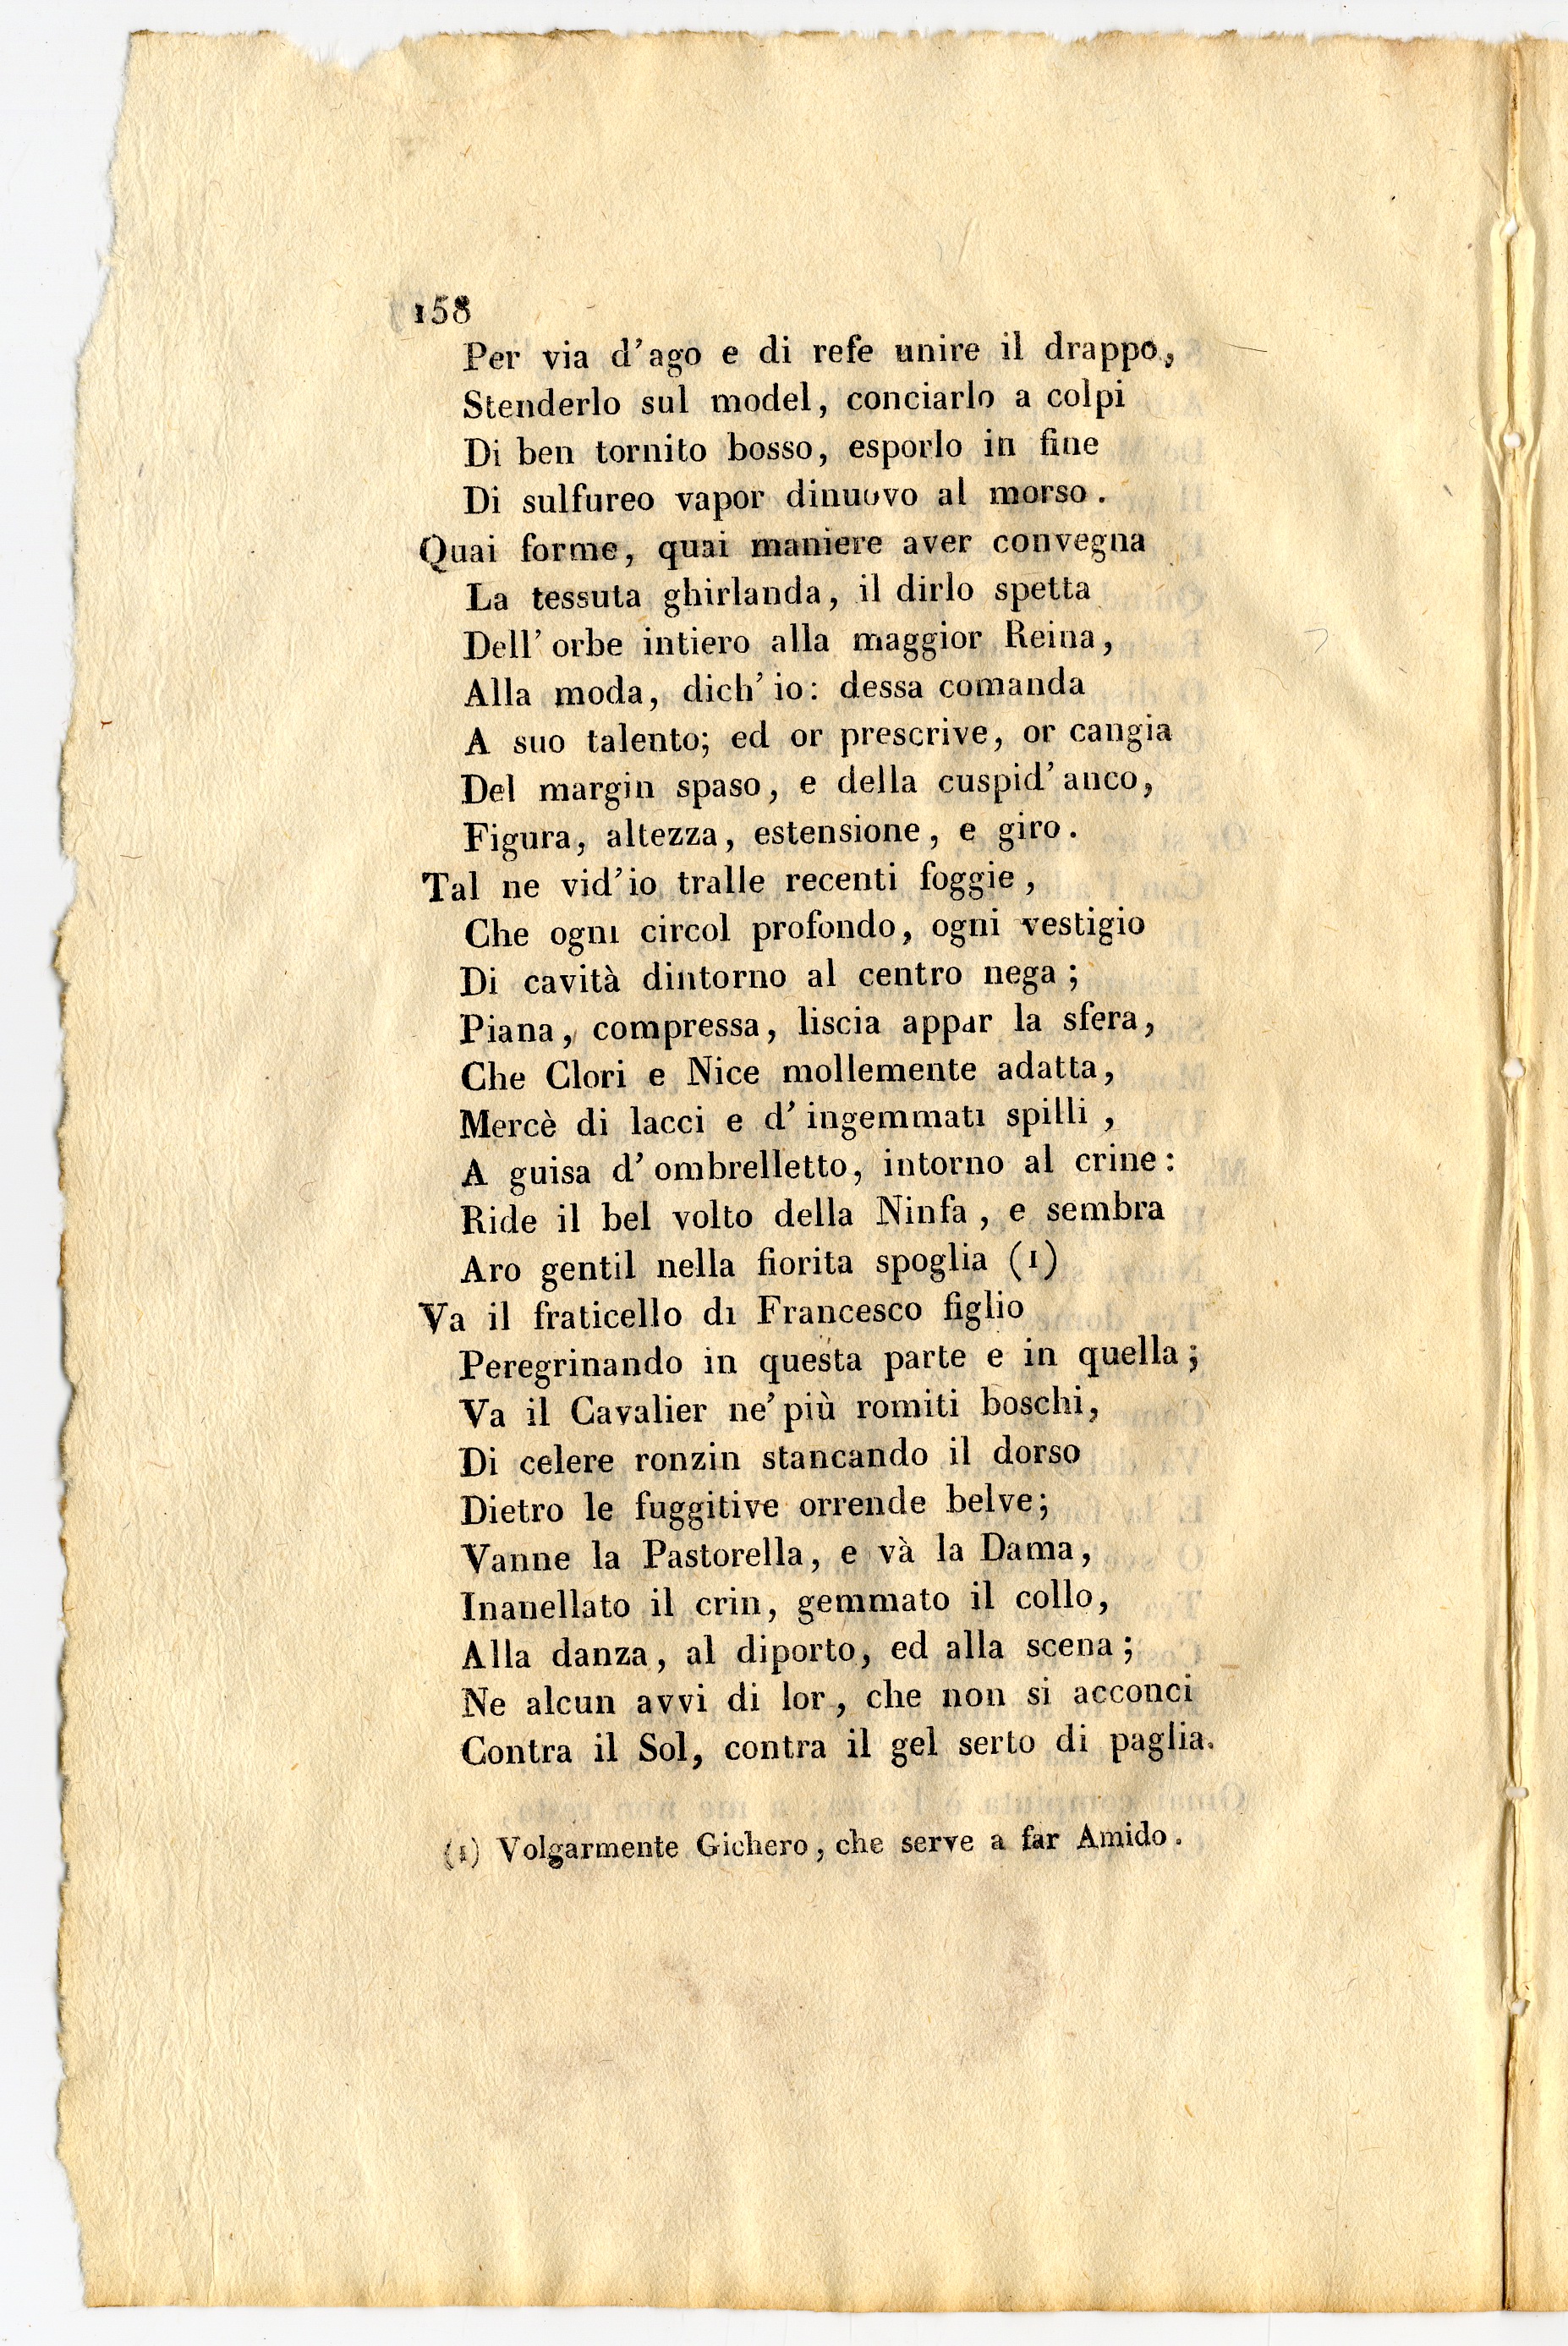 158
Per via d'ago e di refe unire il drappo,
Stenderlo sul model, conciarlo a colpi
Di ben tornito bosso, esporlo in fine
Di sulfureo vapor dinuovo al morso.
Quai forme, quai maniere aver convegna
La tessuta ghirlanda, il dirlo spetta
Dell' orbe intiero alla maggior Reina,
Alla moda, dich' io: dessa comanda
A suo talento; ed or prescrive, or cangia
Del margin spaso, e della cuspid' anco,
Figura, altezza, estensione, e giro.
Tal ne vid'io tralle recenti foggie,
Che ogni circol profondo, ogni vestigio
Di cavità dintorno al centro nega;
Piana, compressa, liscia appar la sfera,
Che Clori e Nice mollemente adatta,
Mercè di lacci e d' ingemmati spilli,
A guisa d' ombrelletto, intorno al crine:
Ride il bel volto della Ninfa, e sembra
Aro gentil nella fiorita spoglia (1)
Va il fraticello di Francesco figlio
Peregrinando in questa parte e in quella;
Va il Cavalier ne' più romiti boschi,
Di celere ronzin stancando il dorso
Dietro le fuggitive orrende belve;
Vanne la Pastorella, e và la Dama,
Inanellato il crin, gemmato il collo,
Alla danza, al diporto, ed alla scena;
Ne alcun avvi di lor, che non si acconci
Contra il Sol, contra il gel serto di paglia.
(1) Volgarmente Gichero, che serve a far Amido.